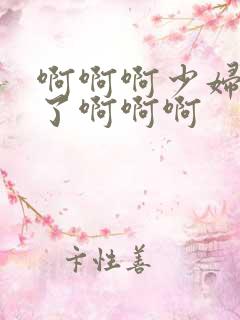 啊啊啊少婦
了啊啊啊
卡性善